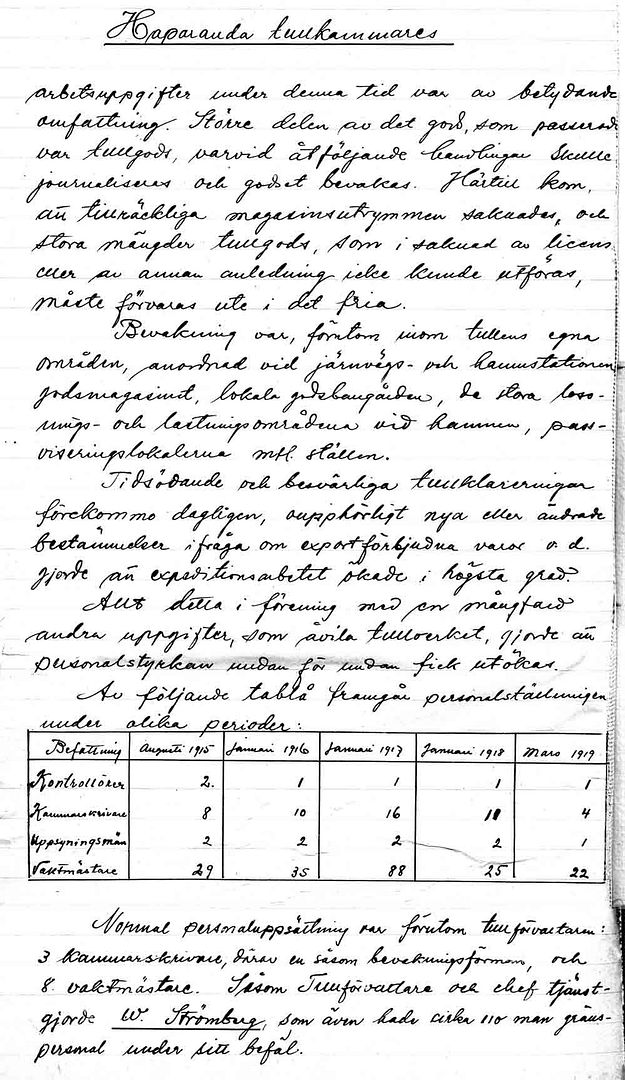 Haparanda tullkammares
arbetsuppgifter under denna tid var av betydande
omfattning. Större delen av det gods, som passerade
var tullgods, varvid åtföljande handlingar skulle
journaliseras och godset bevakas. Härtill kom,
att tillräckliga magasinsutrymmen saknades, och
stora mängder tullgods, som i saknad av licens
eller av annan anledning icke kunde utföras,
måste förvaras ute i det fria.
Bevakning var, förutom inom tullens egna
områden, anordnad vid järnvägs- och hamnstationen
godsmagasinet, lokala godsbangården, de stora loss-
nings- och lastningsområdena vid hamnen, pass-
viseringslokalerna m.fl. ställen.
Tidsödande och besvärliga tullklareringar
förekommo dagligen, oupphörligt nya eller ändrade
bestämmelser ifråga om exportförbjudna varor o. d.
gjorde att expeditionsarbetet ökade i högsta grad.
Allt detta i förening med en mångfald
andra uppgifter, som åvila tullverket, gjorde att
personalstyrkan undan för undan fick utökas.
Av följande tablå framgår personalställningen
under olika perioder:
Befattning Augusti 1915 Januari 1916 Januari 1917 Januari 1918 Mars 1919
Kontrollörer 2. 1 1 1 1
Kammarskrivare 8 10 16 11 4
Uppsyningsmän 2 2 2 2 1
Vaktmästare 29 35 88 25 22
Normal personaluppsättning var förutom tullförvaltaren:
3 kammarskrivare, därav en såsom bevakningsförman, och
8 vaktmästare. Såsom Tullförvaltare och chef tjänst-
gjorde W. Strömberg, som även hade cirka 110 man gräns-
personal under sitt befäl.